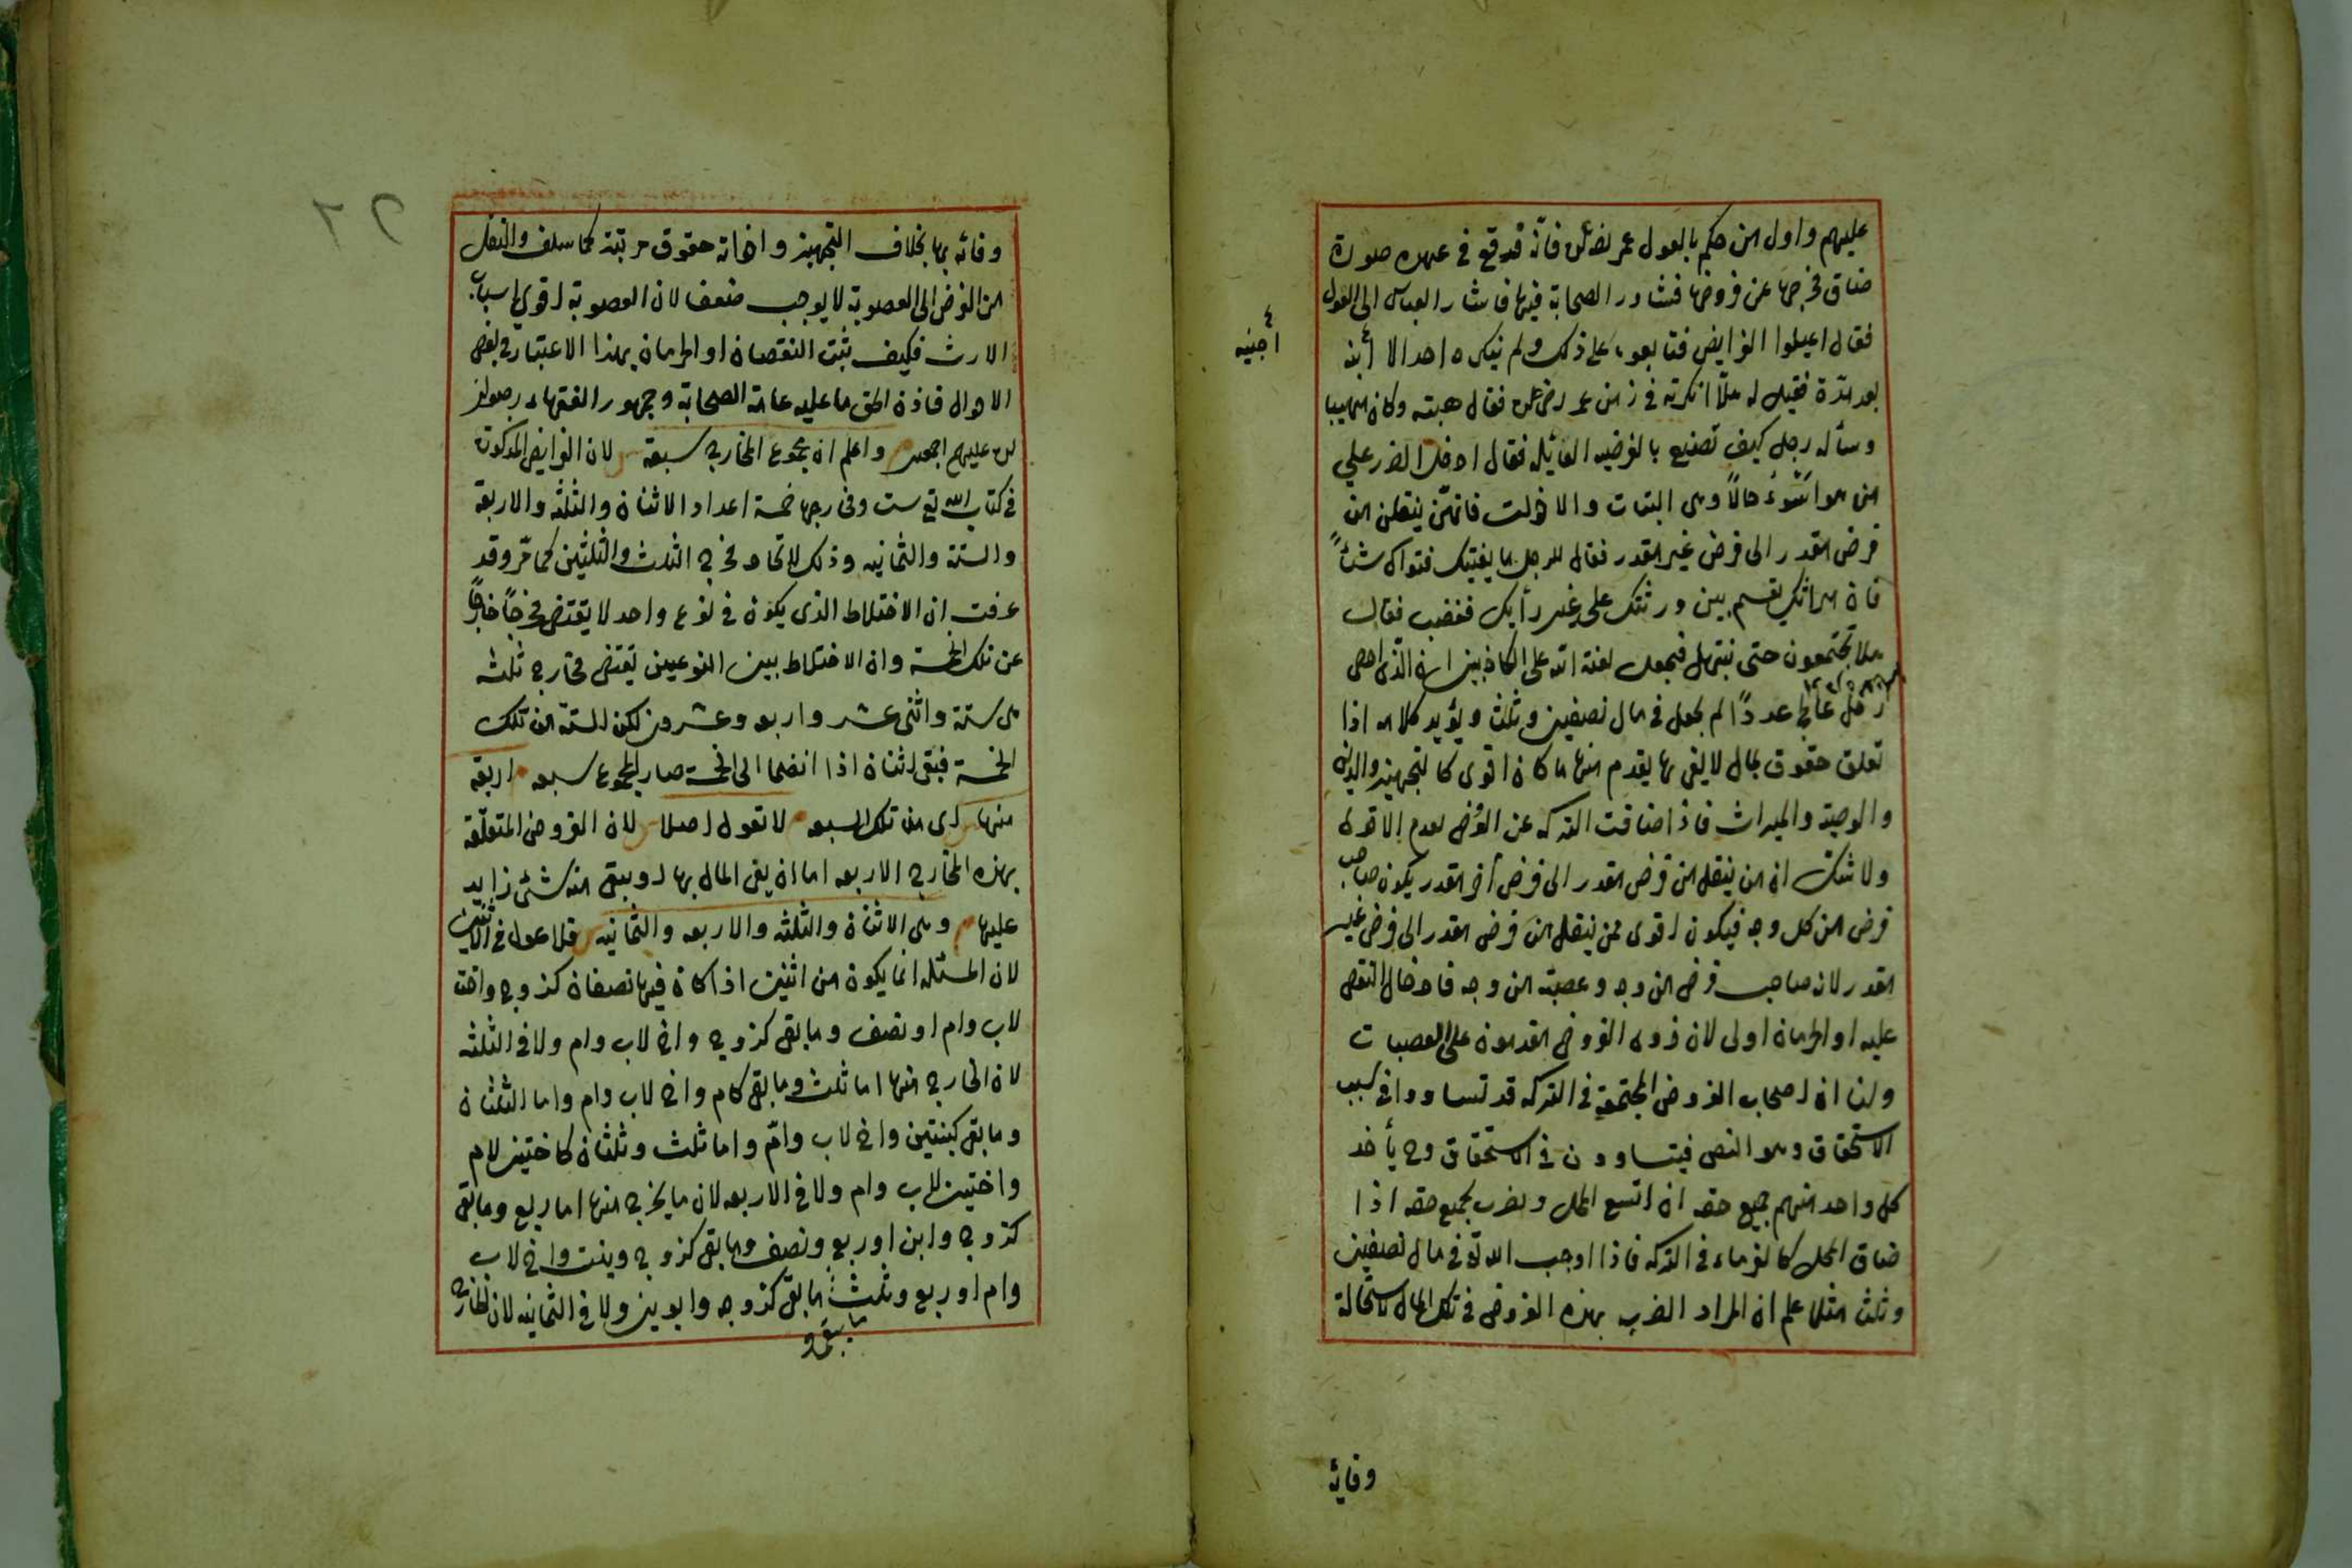 عليهم واول من حكم بالعول عمر رضى عنه فانه قد وقع فى عهده صورة
ضاق مخرجها عن فروضها فشاور الصحابة فيها فاشار العباس الى العول
فقال اعيلوا الفرايض فتابعوه على ذلك ولم ينكره احد الا ابنه
أجنبيه
بعد مدة فقيل له هلا انكرته فى زمن عمر رضى عنه فقال هبته وكان مهيبا
وسأله رجل كيف تصنع بالفريضه العائله فقال ادخل الضرر على
من هو اسوء حالا وهى البنات والاخوات فانهن ينقلن من
فرض مقدر الى فرض غير مقدر فقال الرجل ما يغنيك فتواك شئا
فان ميراثك يقسم بين ورثتك على غير رأيك فغضب فقال
هلا تجتمعون حتى نبتهل فنجعل لعنة الله على الكاذبين ان الذى احصى
رمل عالج عددا لم يجعل فى مال نصفين وثلث ويؤيد كلامه اذا
تعلق حقوق بمال لا يفى بها يقدم منها ما كان اقوى كالتجهيز والدين
والوصية والميراث فاذا ضاقت التركه عن الفرض يقدم الاقوى
ولا شك ان من ينقل من فرض مقدر الى فرض آخر مقدر يكون صاحب
فرض من كل وجه فيكون اقوى ممن ينقل من فرض مقدر الى فرض غير
مقدر لانه صاحب فرض من وجه وعصبة من وجه فادخال النقص
عليه او الحرمان اولى لان ذوى الفروض مقدمون على العصبات
ولنا ان اصحاب الفروض المجتمعة فى التركه قد تساووا فى سبب
الاستحقاق وهو النص فيتساوون فى الاستحقاق وح يأخذ
كل واحد منهم جميع حقه ان اتسع المحل ويضرب بجميع حقه اذا
ضاق المحل كالغرماء فى التركه فاذا اوجب الله تع فى مال نصفين
وثلث مثلا علم ان المراد الضرب بهذه الفروض فى تلك المال لاستحالة
وفائه
وفائه بها بخلاف التجهيز واخواته حقوق مرتبة كما سلف والنقل
من الفرض الى العصوبة لا يوجب ضعفا لان العصوبة اقوى اسباب
الارث فكيف يثبت النقصان او الحرمان بهذا الاعتبار فى بعض
الاحوال فاذن الحق ما عليه عامة الصحابة وجمهور الفقهاء رضوان
الله عليهم اجمعين واعلم ان مجموع المخارج سبعة لان الفرايض المذكورة
فى كتاب الله تع ست ومخارجها خمسة اعداد الاثنان والثلثه والاربعة
والستة والثمانيه وذلك لاتحاد مخرج الثلث والثلثين كما مر وقد
عرفت ان الاختلاط الذى يكون فى نوع واحد لا يقتضى مخرجا خارجا
عن تلك الخمسة وان الاختلاط بين النوعين يقتضى مخارج ثلثه
هى ستة واثنى عشر واربعه وعشرون لكن الستة من تلك
الخمسة فبقى اثنان اذا انضما الى الخمسة صار المجموع سبعه اربعة
منها اى من تلك السبعه لا تعول اصلا لان الفروض المتعلقة
بهذه المخارج الاربعه اما ان يفى المال بها او يبقى منه شئ زايد
عليها وهى الاثنان والثلثه والاربعه والثمانيه فلا عول فى الاثنين
لان المسئله انما يكون من اثنين اذا كان فيها نصفان كزوج واخت
لاب وام او نصف وما بقى كزوج واخ لاب وام ولا فى الثلثه
لان الخارج منها اما ثلث وما بقى كام واخ لاب وام واما الثلثان
وما بقى كبنتين واخ لاب وام واما ثلث وثلثان كاختين لام
واختين لاب وام ولا فى الاربعه لان ما يخرج منها اما ربع وما بقى
كزوج وابن او ربع ونصف وما بقى كزوج وبنت واخ لاب
وام او ربع وثلث ما بقى كزوجه وابوين ولا فى الثمانيه لان الخارج